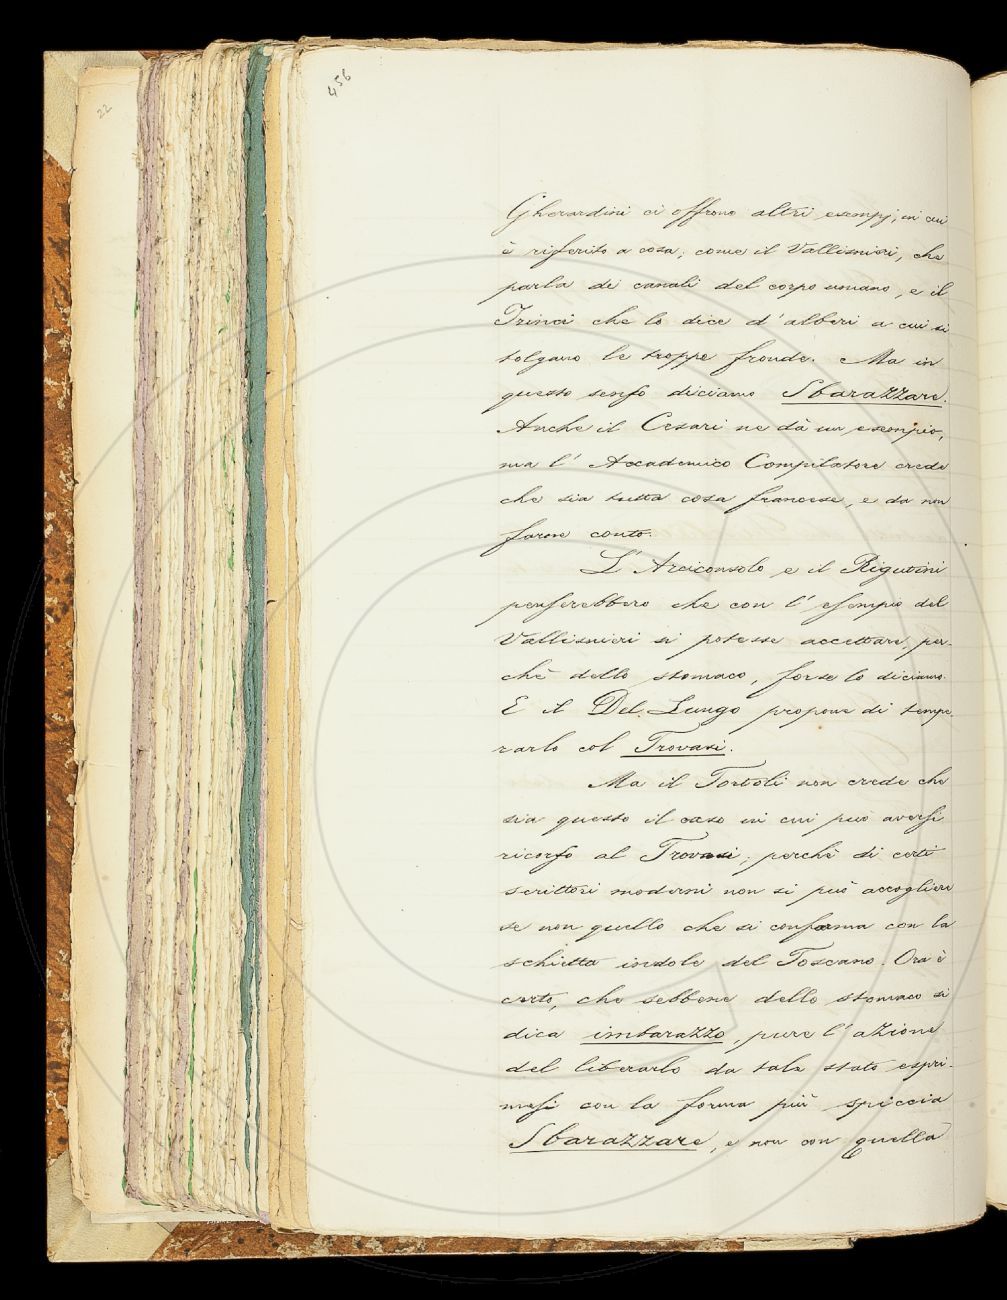 22
456
Gherardini ci offrono altri esempj, in cui
è riferito a cosa; come il Vallisnieri, che
parla di canali del corpo umano, e il
Trinci che lo dice d'alberi a cui si
tolgano le troppe fronde. Ma in
questo senso diciamo Sbarazzare.
Anche il Cesari ne dà un esempio,
ma l'Accademico Compilatore crede
che sia tutta cosa francese, e da non
farne conto.
L'Arciconsolo e il Rigutini
penserebbero che con l'esempio del
Vallisnieri si potesse accettare, per-
chè dello stomaco, forse lo diciamo.
E il Del Lungo propone di tempe-
rarlo col Trovasi.
Ma il Tortoli non crede che
sia questo il caso in cui può aversi
ricorso al Trovasi; perchè di certi
scrittori moderni non si può accogliere
se non quello che si conforma con la
schietta indole del Toscano. Ora è
certo, che sebbene dello stomaco si
dica imbarazzo, pure l'azione
del liberarlo da tale stato espri-
mesi con la forma più spiccia
Sbarazzare, e non con quella